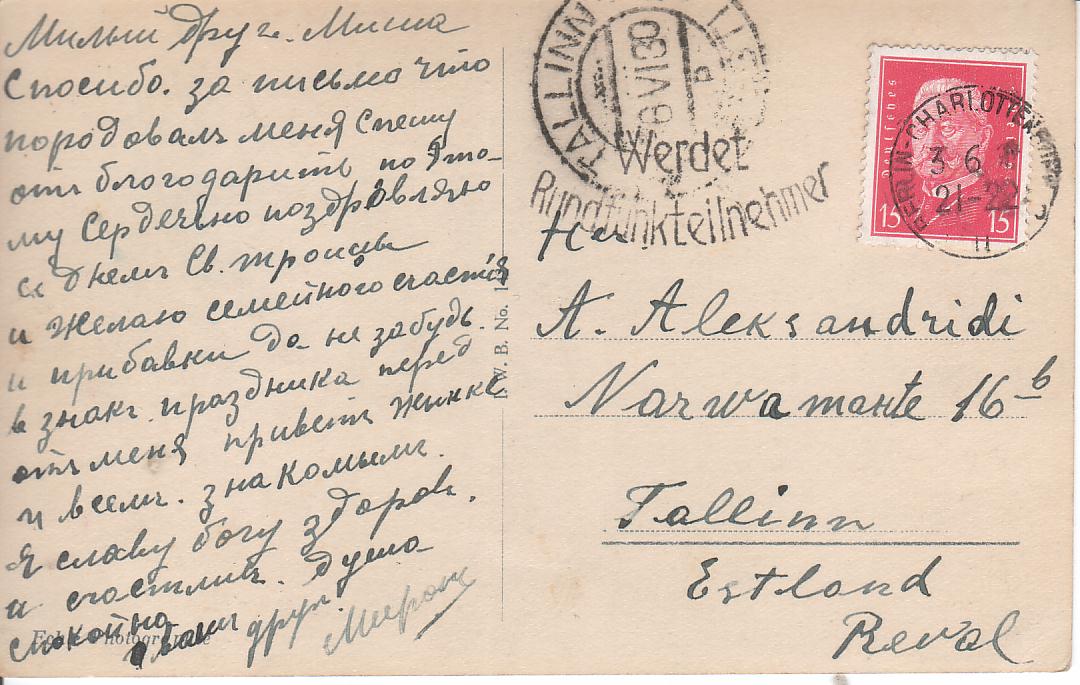 Милый друг. Миша
Спосибо. за письмо что
породовалъ меня Спешу
отъ благодарить по Это-
му Сердечно поздровляю
съ Днемъ Св. троицы
и желаю семейного счастия
и прибавки да не забудь.
в знакъ праздника перед
отъ меня приветъ Жинке
и всемъ. знакомымъ.
Я славу богу здоровъ.
и счастливъ. душа
спокойно
вашъ друг.
Миронъ
TALLINN
EESTI
6 VI 30
Werdet
Rundfunkteilnehmer
BERLIN-CHARLOTTENBURG
3. 6.
21-22
Deutsches Reich
15 15
No. 1
Herr
A. Aleksandridi
Narwa mante 16 b
Tallinn
Estland
Reval